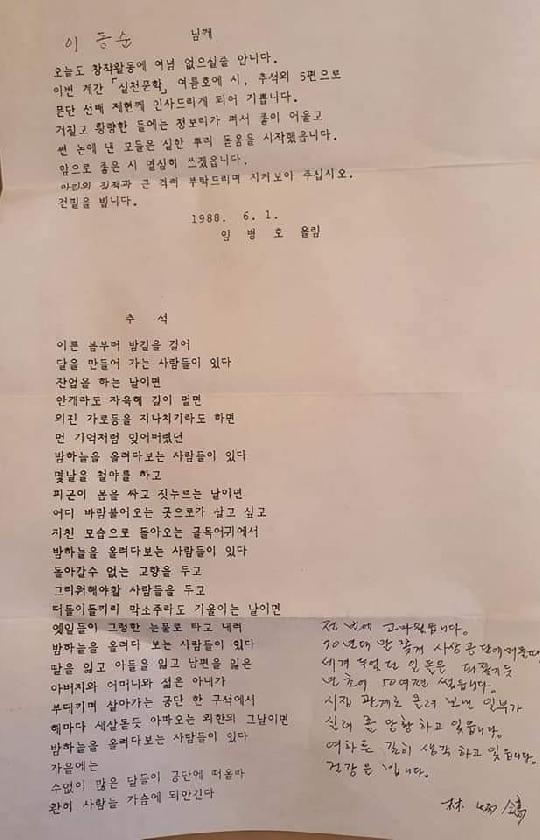 이동순 님께
오늘도 창작활동에 여념 없으실줄 압니다.
이번 계간 「실천문학」 여름호에 시, 추석외 5편으로
문단 선배 제현께 인사드리게 되어 기쁩니다.
거칠고 황량한 들에는 청보리가 펴서 좋이 어울고
썬 논에 낸 모들은 실한 뿌리 돋움을 시작했읍니다.
앞으로 좋은 시 열심히 쓰겠읍니다.
아낌의 질책과 큰 격려 부탁드리며 지켜보아 주십시오.
건필을 빕니다.
1988. 6. 1.
임 병 호 올림
추 석
이른 봄부터 밤길을 걸어
달을 만들어 가는 사람들이 있다
잔업을 하는 날이면
안개라도 자욱해 길이 멀면
외진 가로등을 지나치기라도 하면
먼 기억처럼 잊어버렸던
밤하늘을 올려다보는 사람들이 있다
몇날을 철야를 하고
피곤이 몸을 싸고 짓누르는 날이면
어디 바람불이오는 곳으로가 살고 싶고
지친 모습으로 돌아오는 골목어귀에서
밤하늘을 올려다보는 사람들이 있다
돌아갈수 없는 고향을 두고
그리워해야할 사람들을 두고
떠돌이들끼리 막소주라도 기울이는 날이면
옛일들이 그렁한 눈물로 타고 내려
밤하늘을 올려다 보는 사람들이 있다
딸을 잃고 아들을 잃고 남편을 잃은
아버지와 어머니와 젊은 아내가
부대끼며 살아가는 공단 한 구석에서
해마다 세상돋듯 아파오는 회한의 그날이면
밤하늘을 올려다보는 사람들이 있다
가을에는
수없이 많은 달들이 공단에 떠올라
환이 사람들 가슴에 되안긴다
전 번에 고마웠읍니다.
년 초에 50여편 썼읍니다.
시집 관계로 올려 보낸 일부가
하고 있읍니다.
여하튼 깊이 생각 하고 있읍니다.
건강을 빕니다.
林